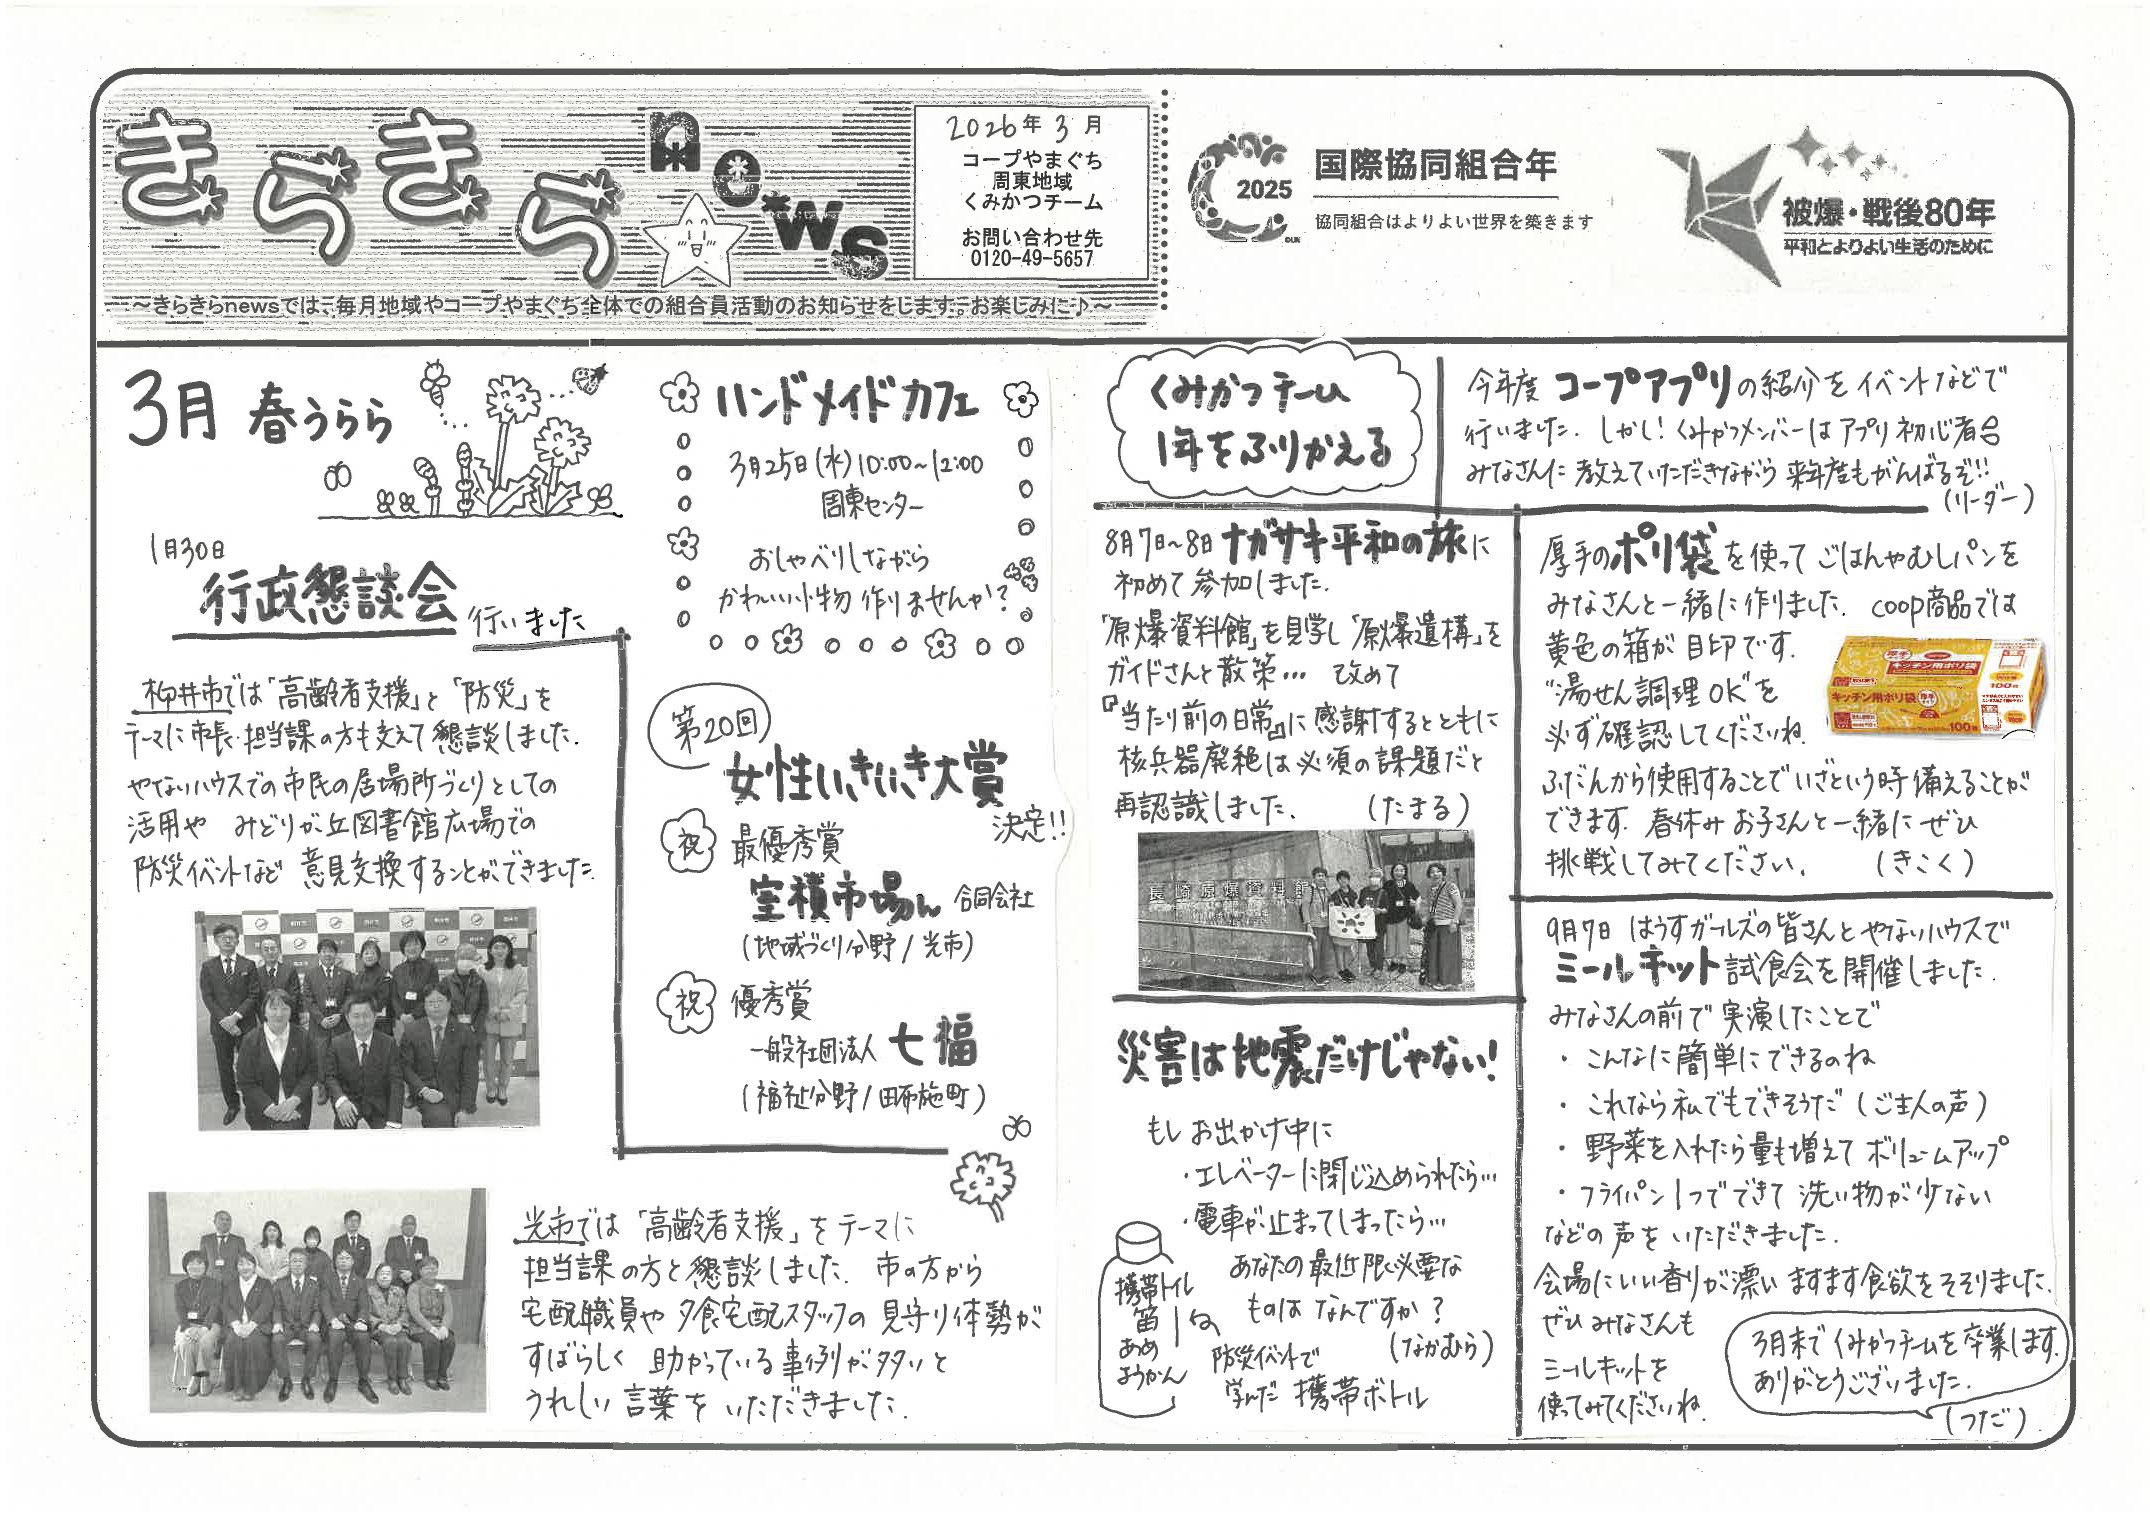 きらきらnews
2026年3月
コープやまぐち
周東地域
くみかつチーム
お問い合わせ先
0120-49-5657
～きらきらnewsでは、毎月地域やコープやまぐち全体での組合員活動のお知らせをします。お楽しみに♪～
2025
国際協同組合年
協同組合はよりよい世界を築きます
被爆・戦後80年
平和とよりよい生活のために
3月 春うらら
1月30日
行政懇談会 行いました
柳井市では「高齢者支援」と「防災」を
テーマに市長・担当課の方も交えて懇談しました.
やないハウスでの市民の居場所づくりとしての
活用や みどりが丘図書館広場での
防災イベントなど 意見交換することができました.
光市では「高齢者支援」をテーマに
担当課の方と懇談しました. 市の方から
宅配職員や夕食宅配スタッフの見守り体勢が
すばらしく 助かっている事例が多いと
うれしい言葉をいただきました.
ハンドメイドカフェ
3月25日(水)10:00～12:00
周東センター
おしゃべりしながら
かわいい小物 作りませんか?
第20回
女性いきいき大賞
決定!!
祝 最優秀賞
室積市場ん 合同会社
(地域づくり分野/光市)
祝 優秀賞
一般社団法人 七福
(福祉分野/田布施町)
くみかつチーム
1年をふりかえる
今年度 コープアプリの紹介をイベントなどで
行いました. しかし! くみかつメンバーはアプリ初心者
みなさんに教えていただきながら 来年度もがんばるぞ!!
(リーダー)
8月7日～8日ナガサキ平和の旅に
初めて参加しました.
「原爆資料館」を見学し「原爆遺構」を
ガイドさんと散策… 改めて
『当たり前の日常』に感謝するとともに
核兵器廃絶は必須の課題だと
再認識しました. (たまる)
長崎原爆資料館
災害は地震だけじゃない!
もしお出かけ中に
・エレベーターに閉じ込められたら…
・電車が止まってしまったら…
あなたの最低限必要な
ものはなんですか?
(なかむら)
携帯トイレ
笛
あめ
ようかん
防災イベントで
学んだ 携帯ボトル
厚手のポリ袋を使ってごはんやむしパンを
みなさんと一緒に作りました. coop商品では
黄色の箱が目印です.
"湯せん調理OK"を
必ず確認してくださいね.
ふだんから使用することでいざという時備えることが
できます. 春休みお子さんと一緒にぜひ
挑戦してみてください. (きこく)
厚手
キッチン用ポリ袋
100枚
キッチン用ポリ袋 厚手
100枚
9月7日 はうすガールズの皆さんとやないハウスで
ミールキット試食会を開催しました.
みなさんの前で実演したことで
・こんなに簡単にできるのね
・これなら私でもできそうだ (ご主人の声)
・野菜を入れたら量も増えてボリュームアップ
・フライパン1つでできて 洗い物が少ない
などの声をいただきました.
会場にいい香りが漂いますます食欲をそそりました.
ぜひみなさんも
ミールキットを
使ってみてくださいね.
3月末でくみかつチームを卒業します.
ありがとうございました.
(つだ)